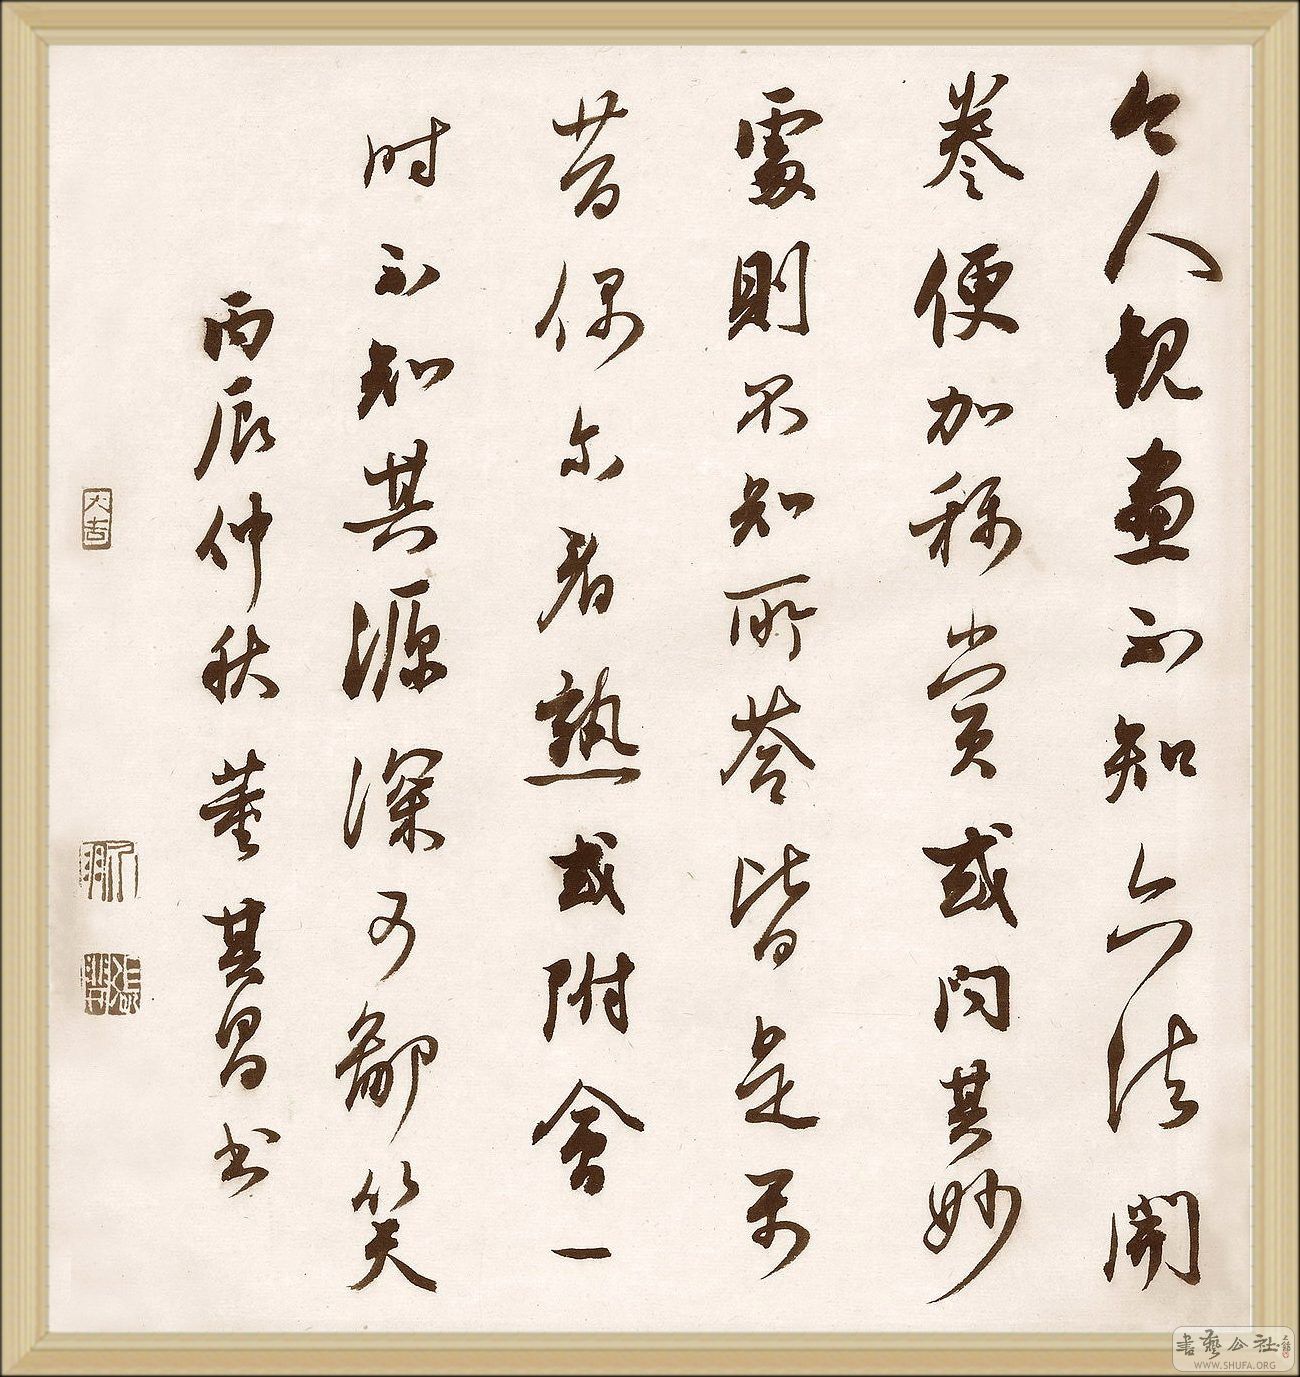 今人觀畫不知六法開
卷便加称賞或问其妙
處則不知所荅皆是平
昔偶尔看熟或附會一
时不知其源深可鄙笑
丙辰仲秋董其昌书
大吉
書藝公社
WWW.SHUFA.ORG